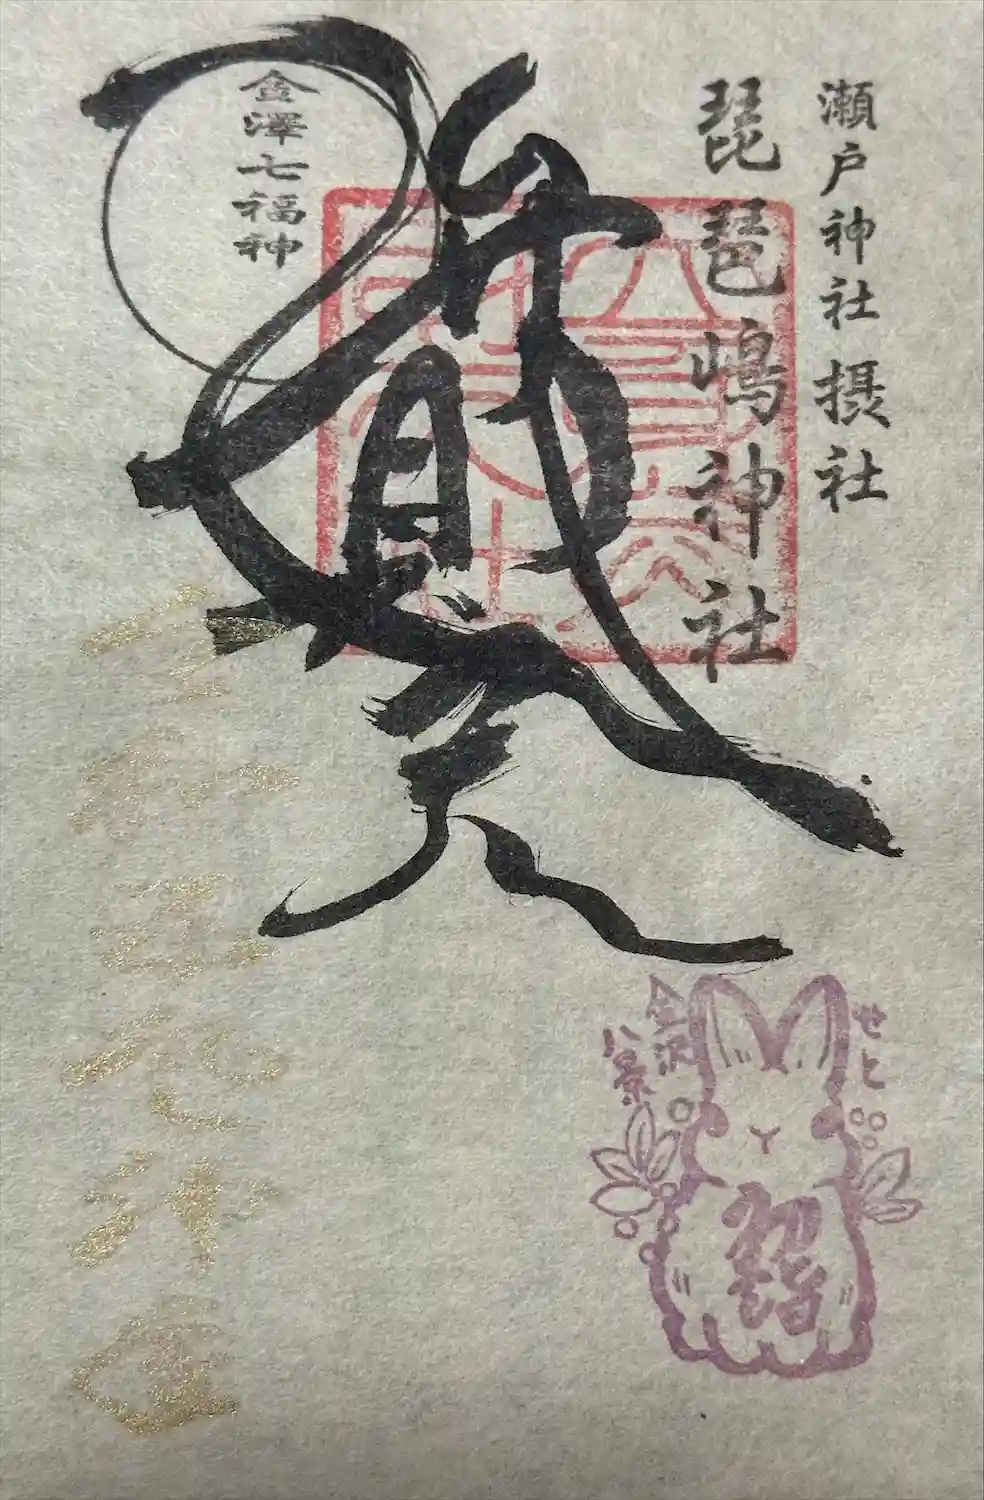 瀬戸神社摂社
琵琶嶋神社
金澤七福神
弁財天
せと
金沢
八景
初詣